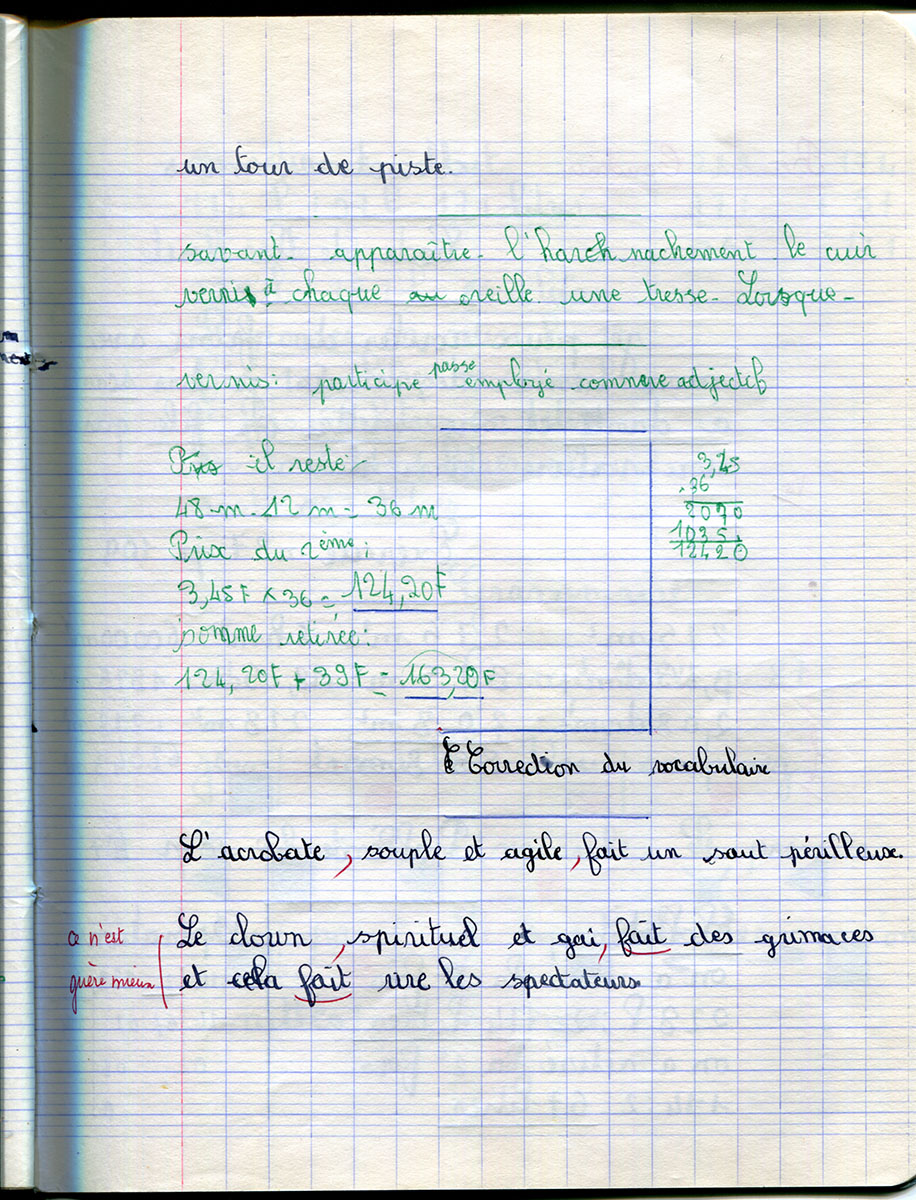 un tour de piste.
savant - apparaître - l'harchnachement le cuir
vernis à chaque oreille une tresse - Lorsque -
vernis : participe passe employé comme adjectif
il reste :
48 m - 12 m = 36 m
Prix du 2ème :
3,45F × 36 = 124,20F
somme retirée :
124,20F + 39F = 163,20F
3,45
.36
2070
1035.
12420
Correction du vocabulaire
L'acrobate, souple et agile, fait un saut périlleux.
ce n'est
guère mieux
Le clown, spirituel et gai, fait des grimaces
et cela fait rire les spectateurs.